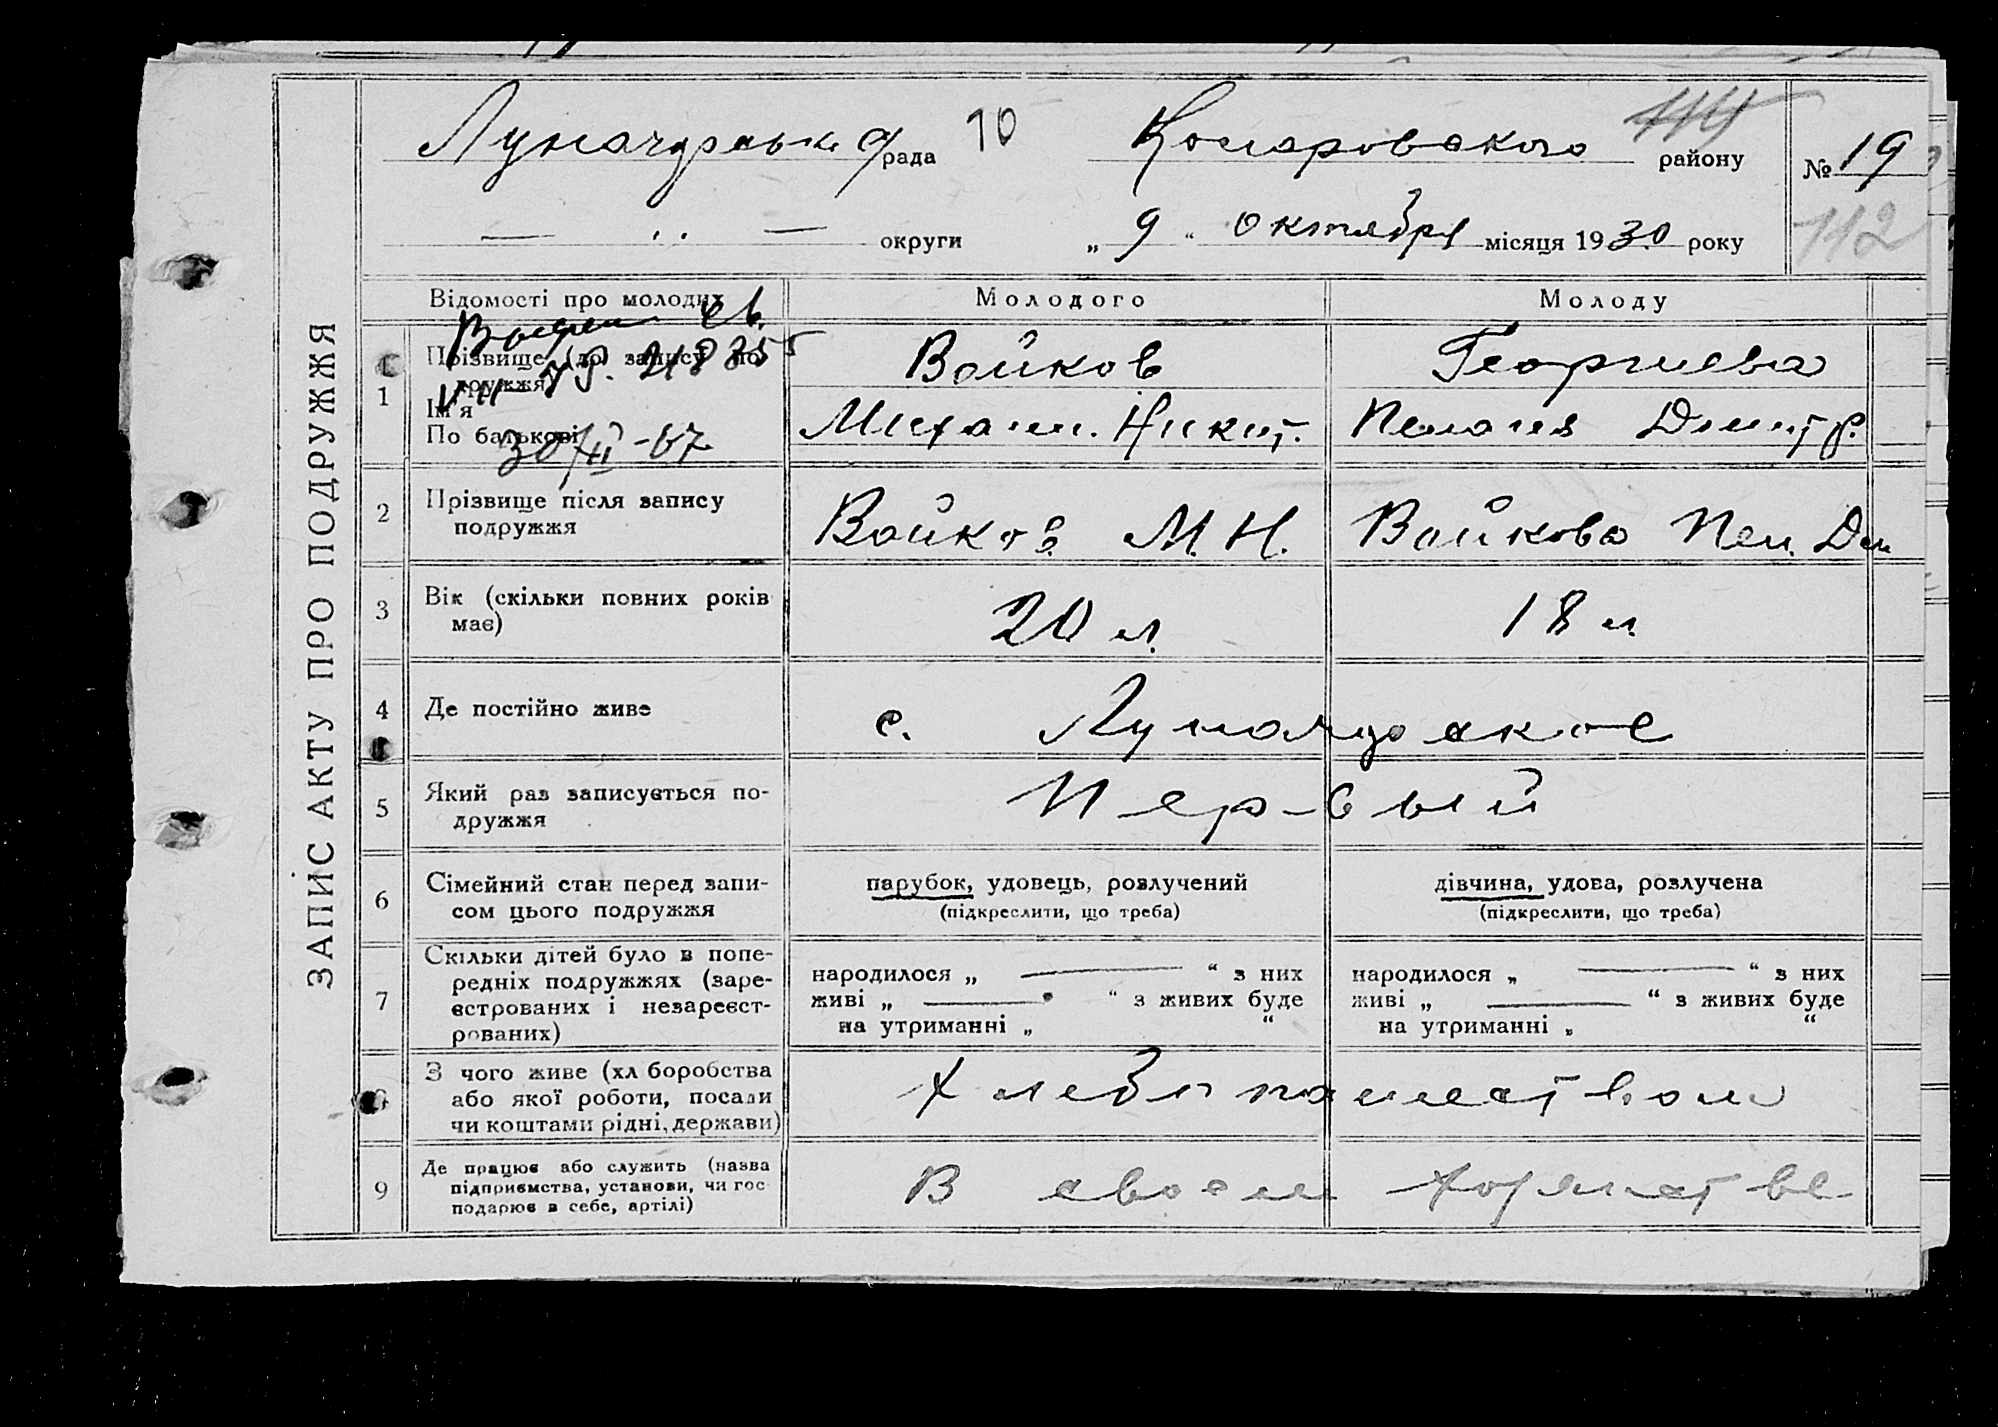 ЗАПИС АКТУ ПРО ПОДРУЖЖЯ
Луначарська рада 10 Комаровского району № 19
— „ — округи „ 9 “ октября місяця 1930 року 112
Відомості про молодих Молодого Молоду
Выдан св.
1 Прізвище (до запису подружжя) Войков Георгиева
Ім'я
По батькові Михаил. Никит. Пелагея Дмитр.
30/XII-67
2 Прізвище після запису Войков М. Н. Войкова Пел. Дм
подружжя
3 Вік (скільки повних років 20 л. 18 л.
має)
4 Де постійно живе с. Луначарское
5 Який раз записується по- Первый
дружжя
6 Сімейний стан перед запи- парубок, удовець, розлучений дівчина, удова, розлучена
сом цього подружжя (підкреслити, що треба) (підкреслити, що треба)
7 Скільки дітей було в попе-
редніх подружжях (заре- народилося „ — “ з них народилося „ — “ з них
єстрованих і незареєст- живі „ — “ з живих буде живі „ — “ з живих буде
рованих) на утриманні „ “ на утриманні „ “
8 З чого живе (хл боробства Хлебопашеством
або якої роботи, посади
чи коштами рідні, держави)
9 Де працює або служить (назва В своем хозяйстве
підприємства, установи, чи гос
подарює в себе, артілі)